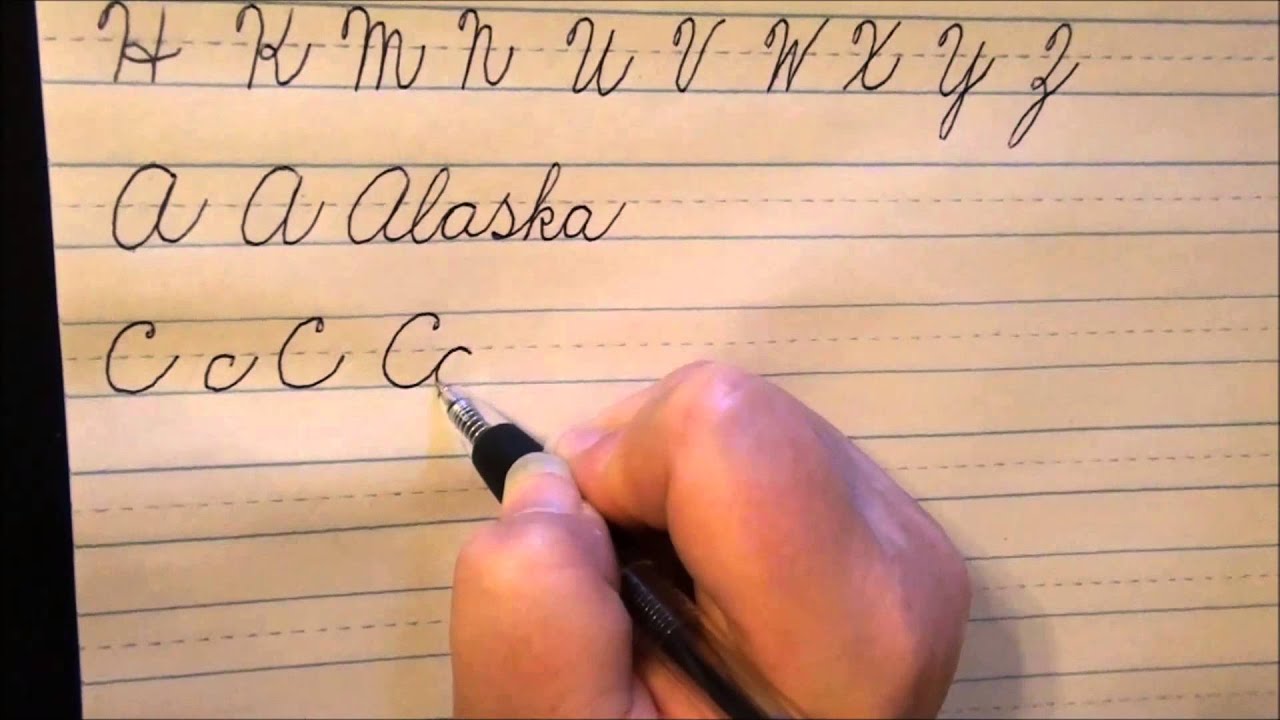 H K M N U V W X Y Z
A A Alaska
C c C Cc